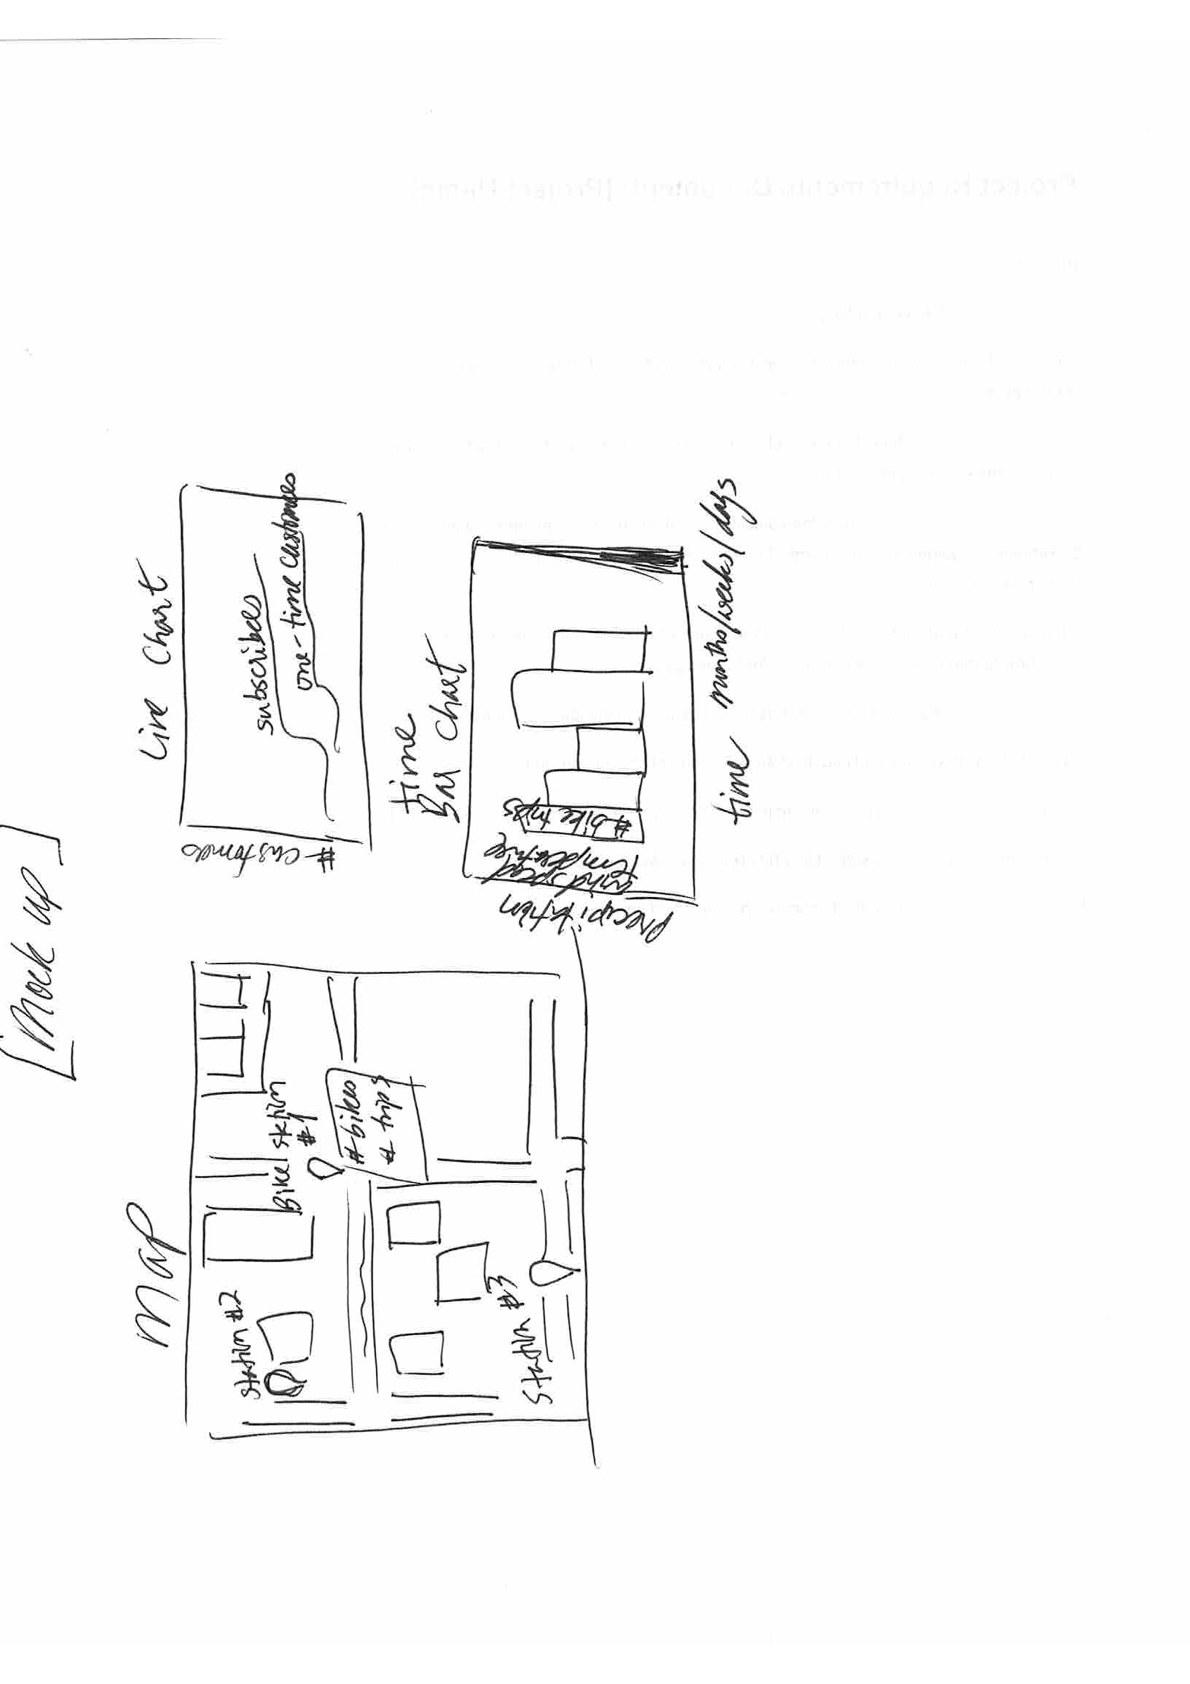 [Mock up]
Map
Station #2
Bike station
#1
# bikes
# trips
Station #3
Line Chart
# customers
subscribers
one-time customers
time
Bar Chart
# bike trips
temperature
wind speed
precipitation
time months/weeks/days